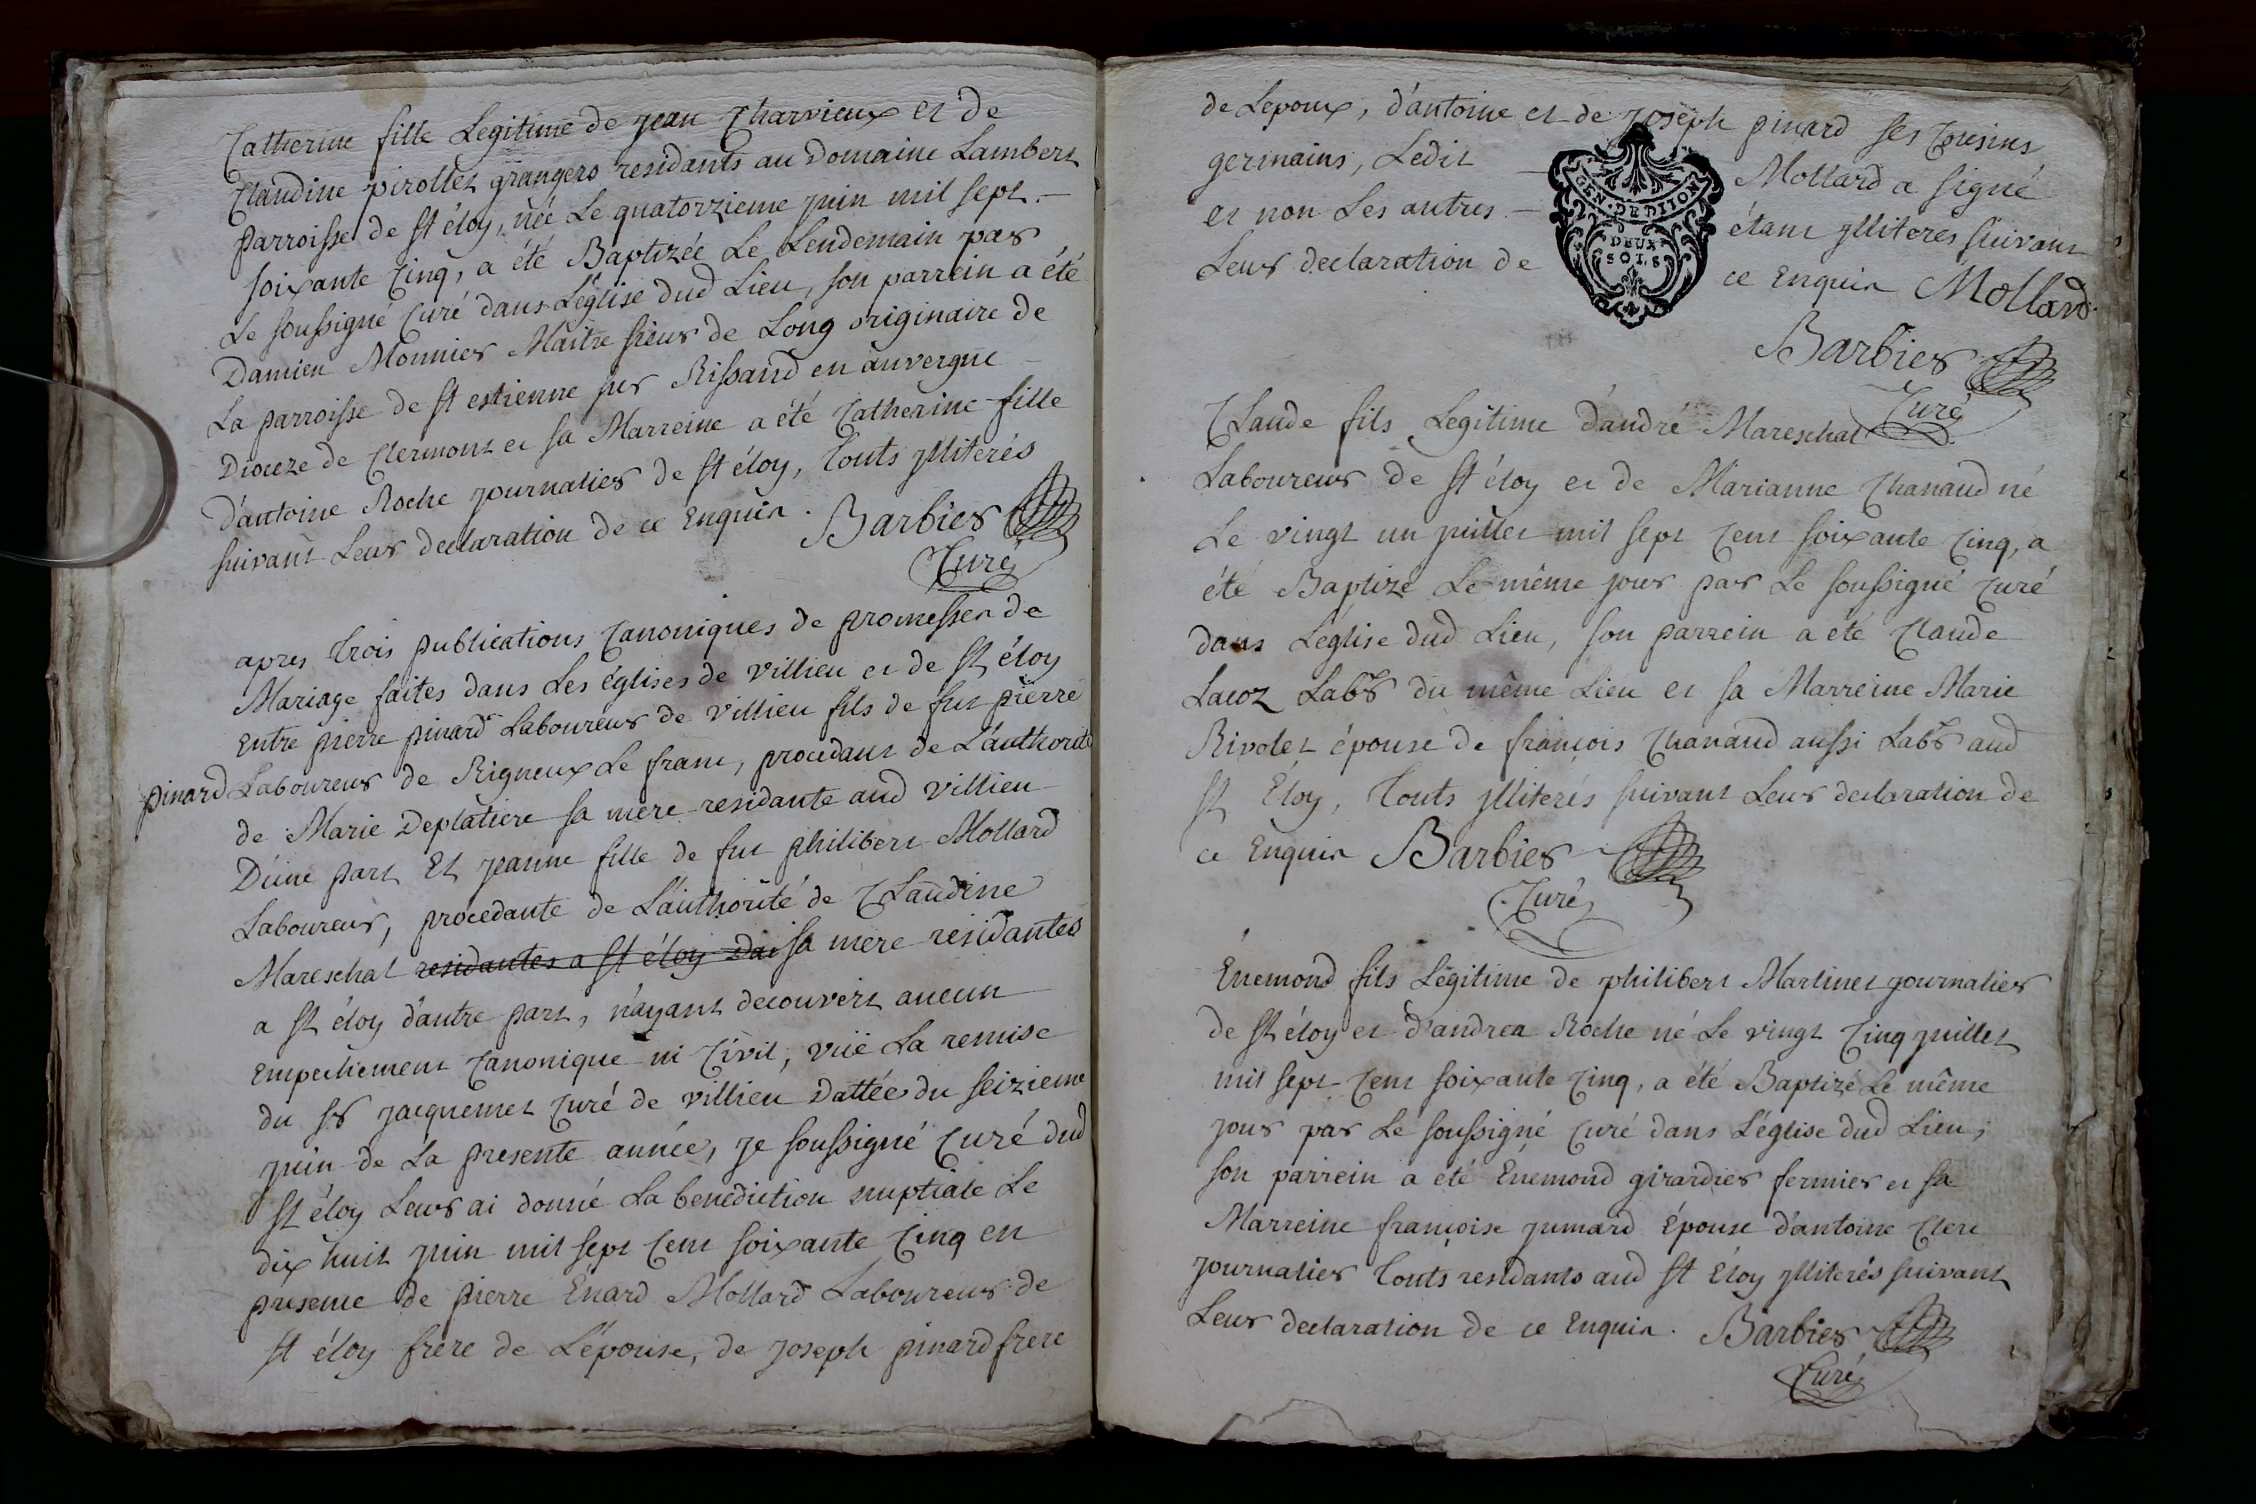 Catherine fille Legitime de jean Charvieux et de
Claudine pirollet grangers residants au Domaine Lambert
parroisse de st éloy, née Le quatorzieme juin mil sept
soixante Cinq, a été Baptizée Le Lendemain par
Le soussigné Curé dans L'église dud Lieu, son parrein a été
Damien Monnier Maitre sieur de Long originaire de
La parroisse de st estienne sur Rissand en auvergne
Dioceze de Clermont et sa Marreine a été Catherine fille
d'antoine Roche journalier de st éloy, touts jlliterés
suivant Leur declaration de ce Enquis. Barbier
Curé
apres trois publications Canoniques de promesses de
Mariage faites dans Les églises de villieu et de st éloy
Entre pierre pinard Laboureur de villieu fils de fut pierre
pinard Laboureur de Rigneux Le franc, procedant de L'authorité
de Marie Deplatiere sa mere residante aud villieu
D'une part Et jeanne fille de fut philibert Mollard
Laboureur, procedante de L'authorité de Claudine
Mareschal residantes a st éloy Dau sa mere residantes
a st éloy d'autre part, n'ayant decouvert aucun
Empechement Canonique ni Civil, vüe La remise
du sr jacquemet Curé de villieu Dattée du seizieme
juin de La presente année, je soussigné Curé dud
st éloy Leur ai donné La benediction nuptiale Le
dix huit juin mil sept Cent soixante Cinq en
presence de pierre Enard Mollard Laboureur de
st éloy frere de L'épouse, de joseph pinard frere
de Lepoux, d'antoine et de joseph pinard ses Cousins
germains, Ledit Mollard a signé
et non Les autres étant jlliteres suivant
Leur declaration de ce Enquis Mollard
GEN. DE DIJON
DEUX
SOLS
Barbier
Curé
Claude fils Legitime d'andré Mareschal
Laboureur de st éloy et de Marianne Chanaud né
Le vingt un juillet mil sept Cent soixante Cinq, a
été Baptizé Le même jour par Le soussigné Curé
dans L'église dud Lieu, son parrein a été Claude
Lacoz Labr du même Lieu et sa Marreine Marie
Rivolet épouse de françois Chanaud aussi Labr aud
st Éloy, touts jlliterés suivant Leur declaration de
ce Enquis Barbier
Curé
Énemond fils Légitime de philibert Martinet journalier
de st éloy et d'andrea Roche né Le vingt Cinq juillet
mil sept Cent soixante Cinq, a été Baptizé Le même
jour par Le soussigné Curé dans L'église dud Lieu,
son parrein a été Énemond girardier fermier et sa
Marreine françoise jumard Épouse d'antoine Clerc
journalier touts residants aud st Éloy jlliterés suivant
Leur declaration de ce Enquis. Barbier
Curé